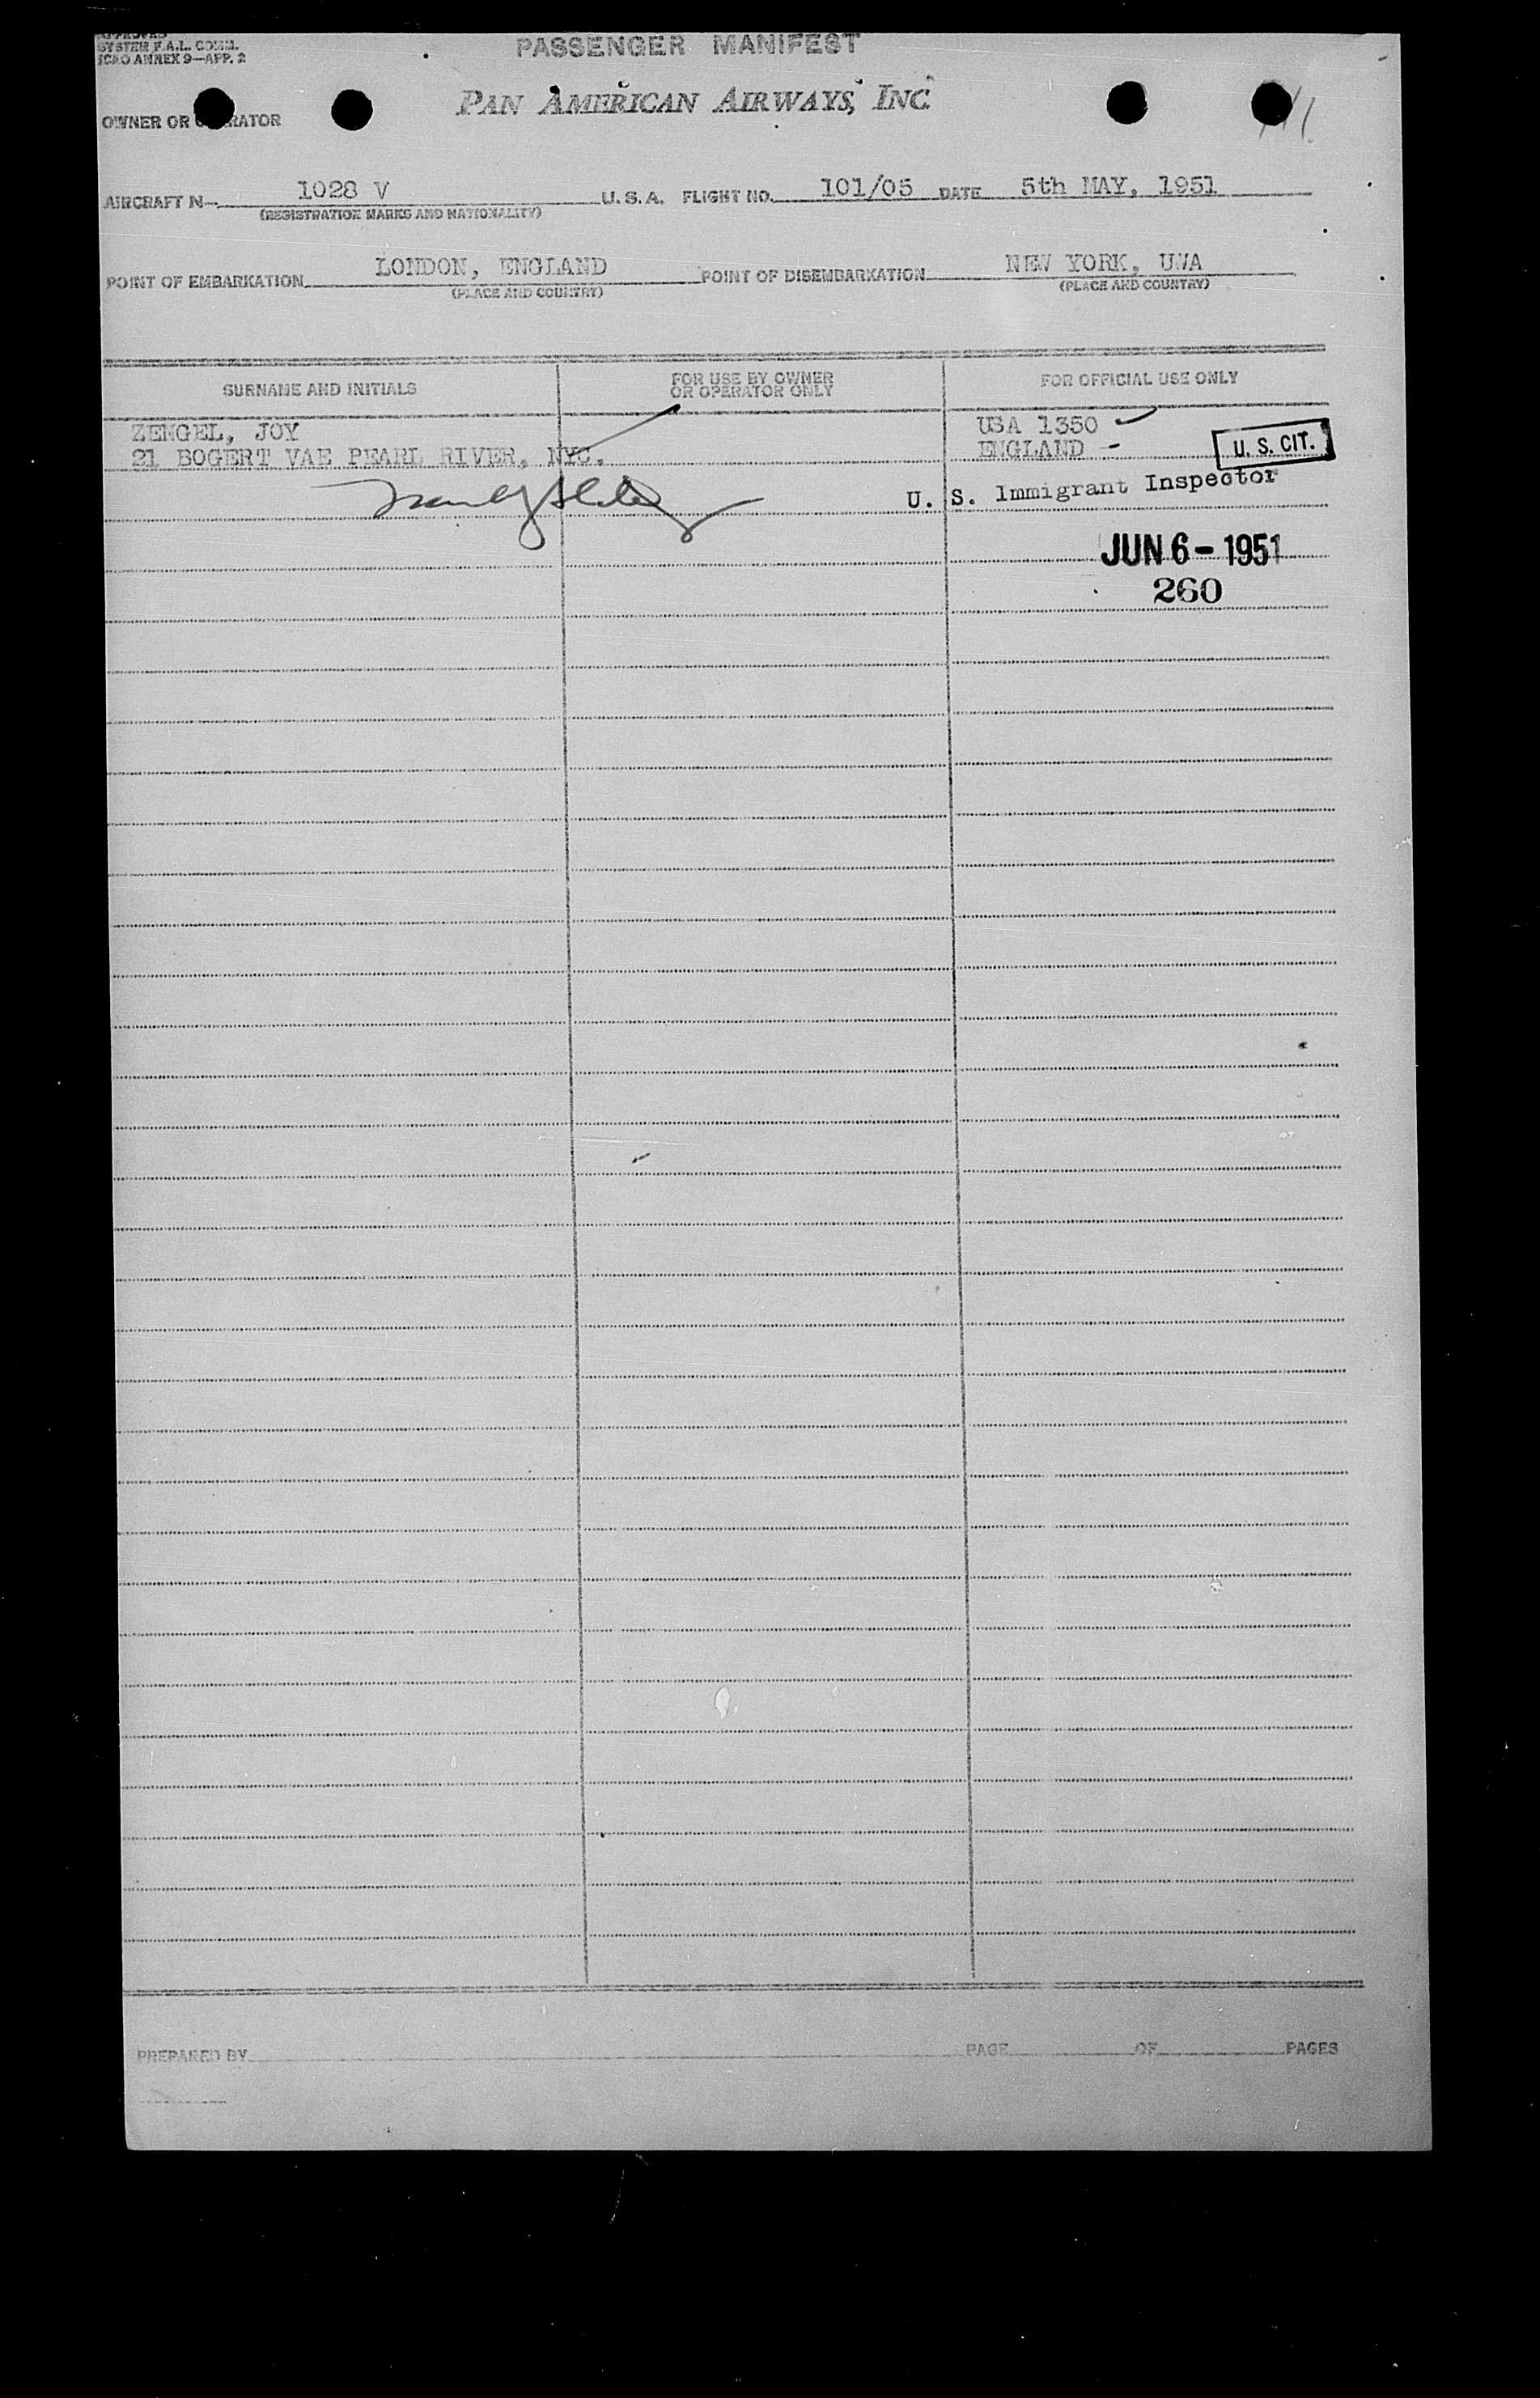 APPROVED
SYSTEM F.A.L. COMM.
ICAO ANNEX 9—APP. 2
PASSENGER MANIFEST
PAN AMERICAN AIRWAYS, INC.
OWNER OR OPERATOR
AIRCRAFT N- 1028 V U.S.A. FLIGHT NO. 101/05 DATE 5th MAY, 1951
(REGISTRATION MARKS AND NATIONALITY)
POINT OF EMBARKATION LONDON, ENGLAND POINT OF DISEMBARKATION NEW YORK, UWA
(PLACE AND COUNTRY) (PLACE AND COUNTRY)
SURNAME AND INITIALS FOR USE BY OWNER OR OPERATOR ONLY FOR OFFICIAL USE ONLY
ZENGEL, JOY USA 1350
21 BOGERT VAE PEARL RIVER, NYC. ENGLAND - U. S. CIT.
U. S. Immigrant Inspector
JUN 6 - 1951
260
PREPARED BY PAGE OF PAGES